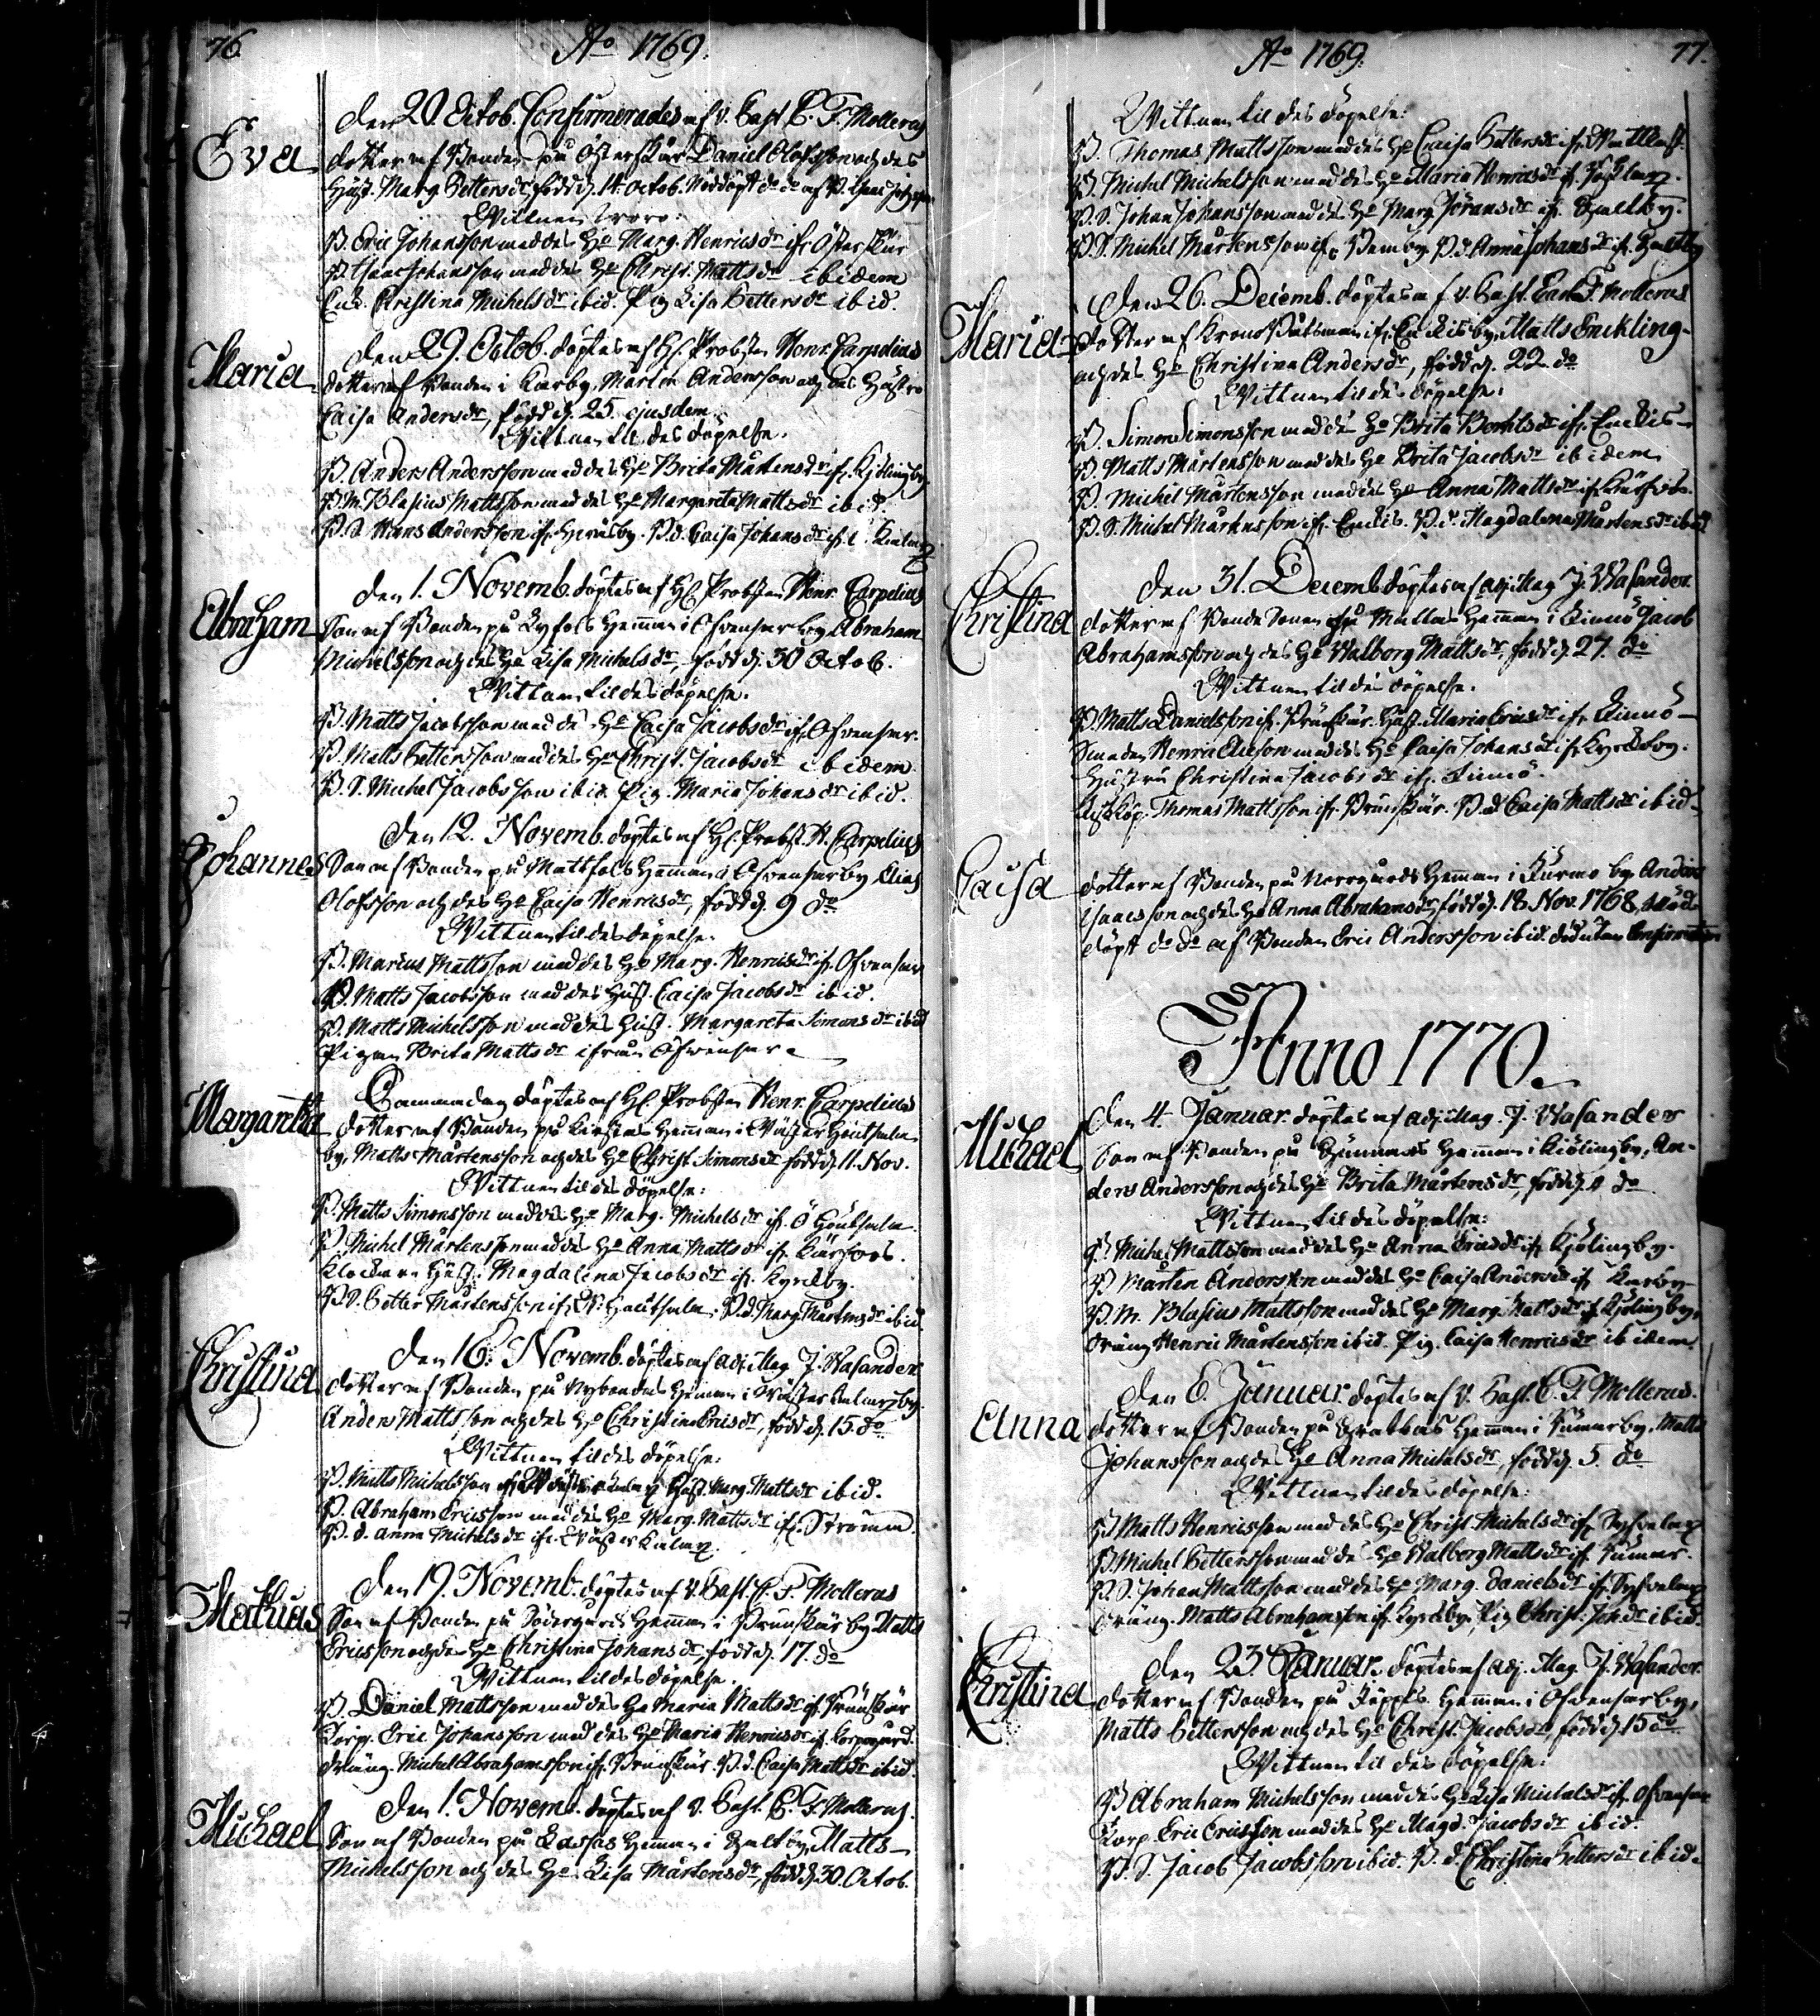 76.
Ao 1769.
Eva
Den 20 Octob. Confirmerades af v. Past. C. F. Mollerus
dotter af Bonden på Österskär Daniel Olofsson och des
Hust. Marg. Petters dr född d. 14 Octob. Nöddöpt do do af B. Isaac Johansson
Wittnen woro:
B. Eric Johansson med des Ho Marg. Henrics dr ifr. Österskär
B. Isaac Johansson med des Ho Christ. Matts dr ibidem
Enk. Christina Michels dr ibid. Pig. Lisa Petters dr ibid.
Maria
Den 29. Octob. döptes af H. Probsten Henr. Carpelius
dotter af Bonden i Karby, Martin Andersson och des Hustro
Caisa Anders dr, född d. 25. ejusdem.
Wittnen til des döpelse.
B. Anders Andersson med des Ho Brita Mårtens dr ifr. Kiölingby.
B. M. Blasius Mattsson med des Ho Margareta Matts dr ibid.
B. S. Hans Andersson ifr. B. d. Caisa Johans dr ifr.
Abraham
Den 1. Novemb. döptes af H. Probsten Henr. Carpelius
Son af Bonden på Hemman i Ofvensor by Abraham
Michelsson och des Ho Lisa Michels dr född d. 30 Octob.
Wittnen til des döpelse.
B. Matts Jacobsson med des Ho Caisa Jacobs dr ifr. Ofvensor.
B. Matts Pettersson med des Ho Christ. Jacobs dr ibidem.
B. S. Michel Jacobsson ibid. Pig. Maria Johans dr ibid.
Johannes
Den 12. Novemb. döptes af H. Probst. H. Carpelius
Son af Bonden på Mattfols Hemman i Ofvensor by Elias
Olofsson och des Ho Caisa Henrics dr, född d. 9 do
Wittnen til des döpelse.
B. Marcus Mattsson med des Ho Marg. Henrics dr ifr. Ofvensor
B. Matts Jacobsson med des Hust. Caisa Jacobs dr ibid.
B. Matts Michelsson med des Hust. Margareta Simons dr ibid
Pigan Brita Matts dr ifrån Ofvensor
Margaretha
Sammadag döptes af H. Probsten Henr. Carpelius
dotter af Bonden på Hemman i Wäster
by, Matts Mårtensson och des Ho Christ. Simons dr född d. 11. Nov.
Wittnen til des döpelse:
B. Matts Simonsson med des Ho Marg. Michels dr ifr. Ö
B. Michel Mårtensson med des Ho Anna Matts dr ifr.
Klockare Hust. Magdalena Jacobs dr ifr. Kyrckby.
B. S. Petter Mårtensson ifr. W. B. d. Marg. Mårtens dr ibid
Christina
Den 16. Novemb. döptes af adj. Mag. J. Wasander
dotter af Bonden på Nybondas Hemman i Wäster by.
Anders Mattsson och des Ho Christina Erics dr, född d. 15. do
Wittnen til des döpelse:
B. Matts Michelsson Hust. Marg. Matts dr ibid.
B. Abraham Ericsson med des Ho Marg. Matts dr ifr. Strömm.
B. d. Anna Michels dr ifr. Wäster
Mathias
Den 19. Novemb. döptes af v. Past. C. F. Molleras
Son af Bonden på Södergårds Hemman i Brunskär by Matts
Ericsson och des Ho Christina Johans dr född d. 17. do
Wittnen til des döpelse.
B. Daniel Mattsson med des Ho Maria Matts dr ifr. Brunskär
Korp. Eric Johansson med des Ho Maria Henrics dr ifr.
Dräng. Michel Abrahamsson ifr. Brunskär. B. d. Caisa Matts dr ibid.
Michael
Den 1. Novemb. döptes af v. Past. C. F. Molleras
Son af Bonden på Hemman i by, Matts
Michelsson och des Ho Lisa Mårtens dr, född d. 30. Octob.
Ao 1769.
77.
Wittnen til des döpelse:
B. Thomas Mattsson med des Ho Caisa Petters dr ifr.
B. Michel Michelsson med des Ho Maria Henrics dr ifr.
B. S. Johan Johansson med des Ho Marg. Jörans dr ifr.
B. S. Michel Mårtensson ifr. B. d. Anna Johans dr ifr.
Maria
Den 26. Decemb. döptes af v. Past. Carl F. Molleras
dotter af Krono Båtsman ifr. Enckis by, Matts Enckling
och des Ho Christina Anders dr, född d. 22 do
Wittnen til des döpelse:
B. Simon Simonsson med des Ho Brita Bertils dr ifr. Enckis
B. Matts Mårtensson med des Ho Brita Jacobs dr ibidem
B. Michel Mårtensson med des Ho Anna Matts dr ifr.
B. S. Michel Mårtensson ifr. Enckis. B. d. Magdalena Mårtens dr ibid
Christina
Den 31. Decemb. döptes af adj. Mag. J. Wasander
dotter af Bonde Sonen på Hemman i Limnö Jacob
Abrahamsson och des Ho Walborg Matts dr, född d. 27. do
Wittnen til des döpelse.
B. Matts Danielsson ifr. Brunskär. Hust. Maria Erics dr ifr. Limnö
Smeden Henric med des Ho Caisa Johans dr ifr. Kyrckby.
Hustru Christina Jacobs dr ifr. Limnö.
Thomas Mattsson ifr. Brunskär. B. d. Caisa Matts dr ibid
Caisa
dotter af Bonden på Norrgårds Hemman i Kurmo by. Anders
Isaacsson och des Ho Anna Abrahams dr, född d. 18. Nov. 1768, Nöd
döpt do do af Bonden Eric Andersson ibid. död utan Confirmation
Anno 1770.
Michael
Den 4. Januar. döptes af adj. Mag. J. Wasander
Son af Bonden på Hemman i Kiölingby, An-
ders Andersson och des Ho Brita Mårtens dr, född d. 1 do
Wittnen til des döpelse:
B. Michel Mattsson med des Ho Anna Erics dr ifr. Kjölingby.
B. Mårten Andersson med des Ho Caisa Anders dr ifr. Karby
B. M. Blasius Mattsson med des Ho Marg. Matts dr ifr. Kjölingby.
Dräng Henric Mårtensson ibid. Pig. Caisa Henrics dr ibidem.
Anna
Den 6. Januar. döptes af v. Past. C. F. Molleras.
dotter af Bonden på Hemman i by. Matts
Johansson och des Ho Anna Michels dr, född d. 5. do
Wittnen til des döpelse:
B. Matts Henricsson med des Ho Christ. Michels dr ifr.
B. Michel Pettersson med des Ho Walborg Matts dr ifr.
B. S. Johan Mattsson med des Ho Marg. Daniels dr ifr.
Dräng. Matts Abrahamsson ifr. Kyrckby. Pig. Christ. Joh. dr ibid.
Christina
Den 23. Januar. döptes af adj. Mag. J. Wasander
dotter af Bonden på Hemman i Ofvensor by,
Matts Pettersson och des Ho Christ. Jacobs dr, född d. 15 do
Wittnen til des döpelse:
B. Abraham Michelsson med des Ho Lisa Michels dr ifr. Ofvensor
Korp. Eric Ericsson med des Ho Magd. Jacobs dr ibid.
B. S. Jacob Jacobsson ibid. B. d. Christina Petters dr ibid.